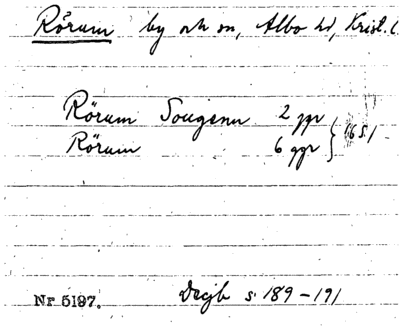 Rörum by och sn, Albo hd, Krist. l.
Rörum Sougenn 2 ggr
Rörum 6 ggr } 1651
Nr 5197. Dcjb s. 189-191